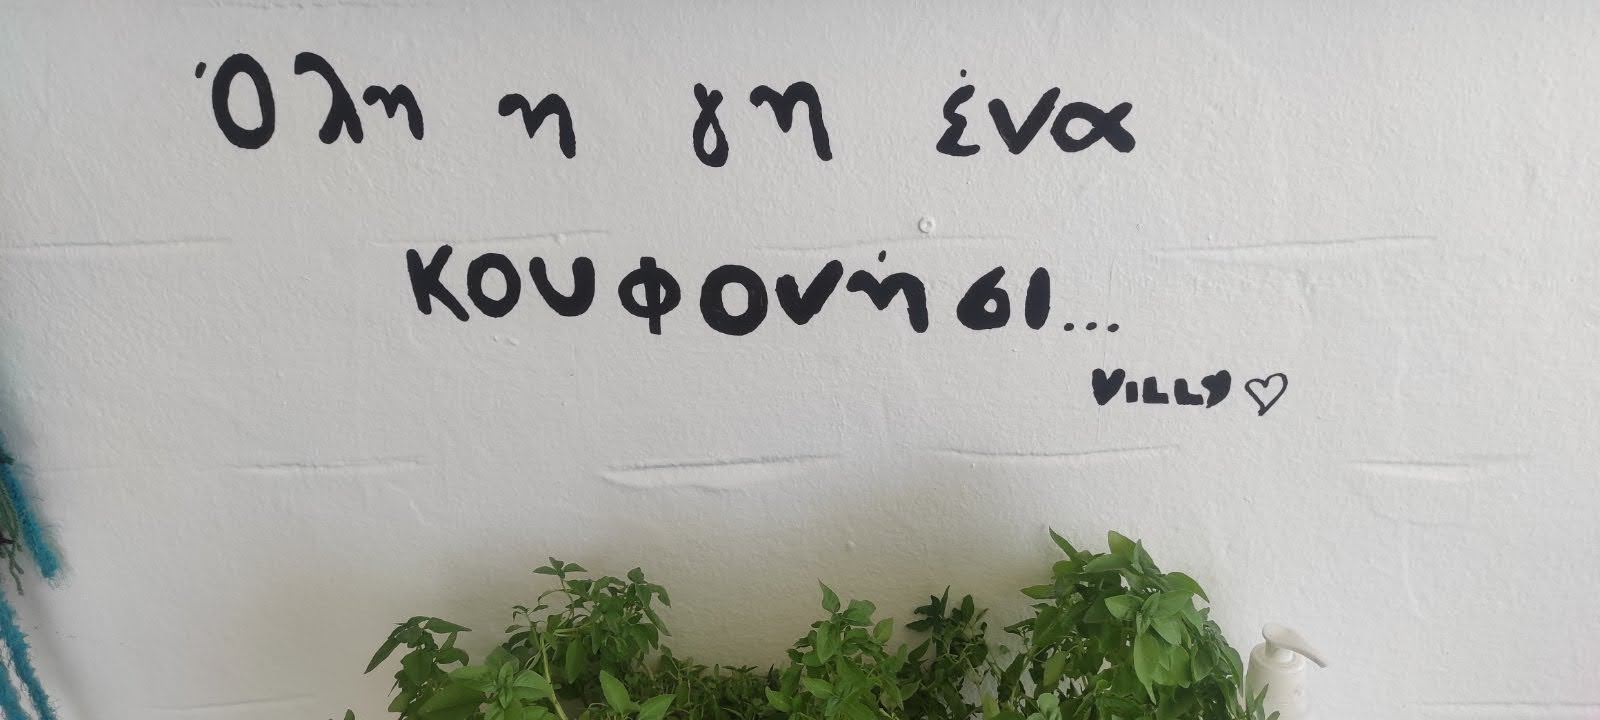 Όλη η γη ένα
κουφονήσι...
VILLY♡